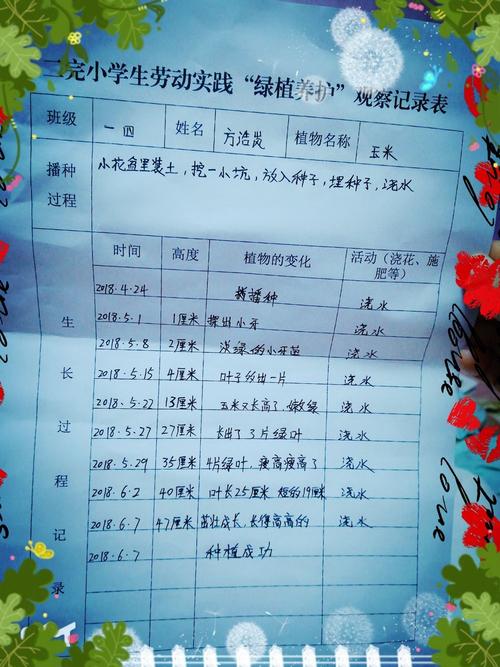 二完小学生劳动实践“绿植养护”观察记录表
班级 一四 姓名 方浩炎 植物名称 玉米
播种过程 小花盆里装土，挖一小坑，放入种子，埋种子，浇水
生长过程记录
时间 高度 植物的变化 活动（浇花、施肥等）
2018.4.24 播种 浇水
2018.5.1 1厘米 探出小牙 浇水
2018.5.8 2厘米 浅绿的小牙苗 浇水
2018.5.15 4厘米 叶子多出一片 浇水
2018.5.22 13厘米 玉米又长高了，嫩绿 浇水
2018.5.27 27厘米 长出了3片绿叶 浇水
2018.5.29 35厘米 4片绿叶，疯高疯高了 浇水
2018.6.2 40厘米 叶长25厘米 短的19厘米 浇水
2018.6.7 47厘米 茁壮成长，长得高高的 浇水
2018.6.7 种植成功